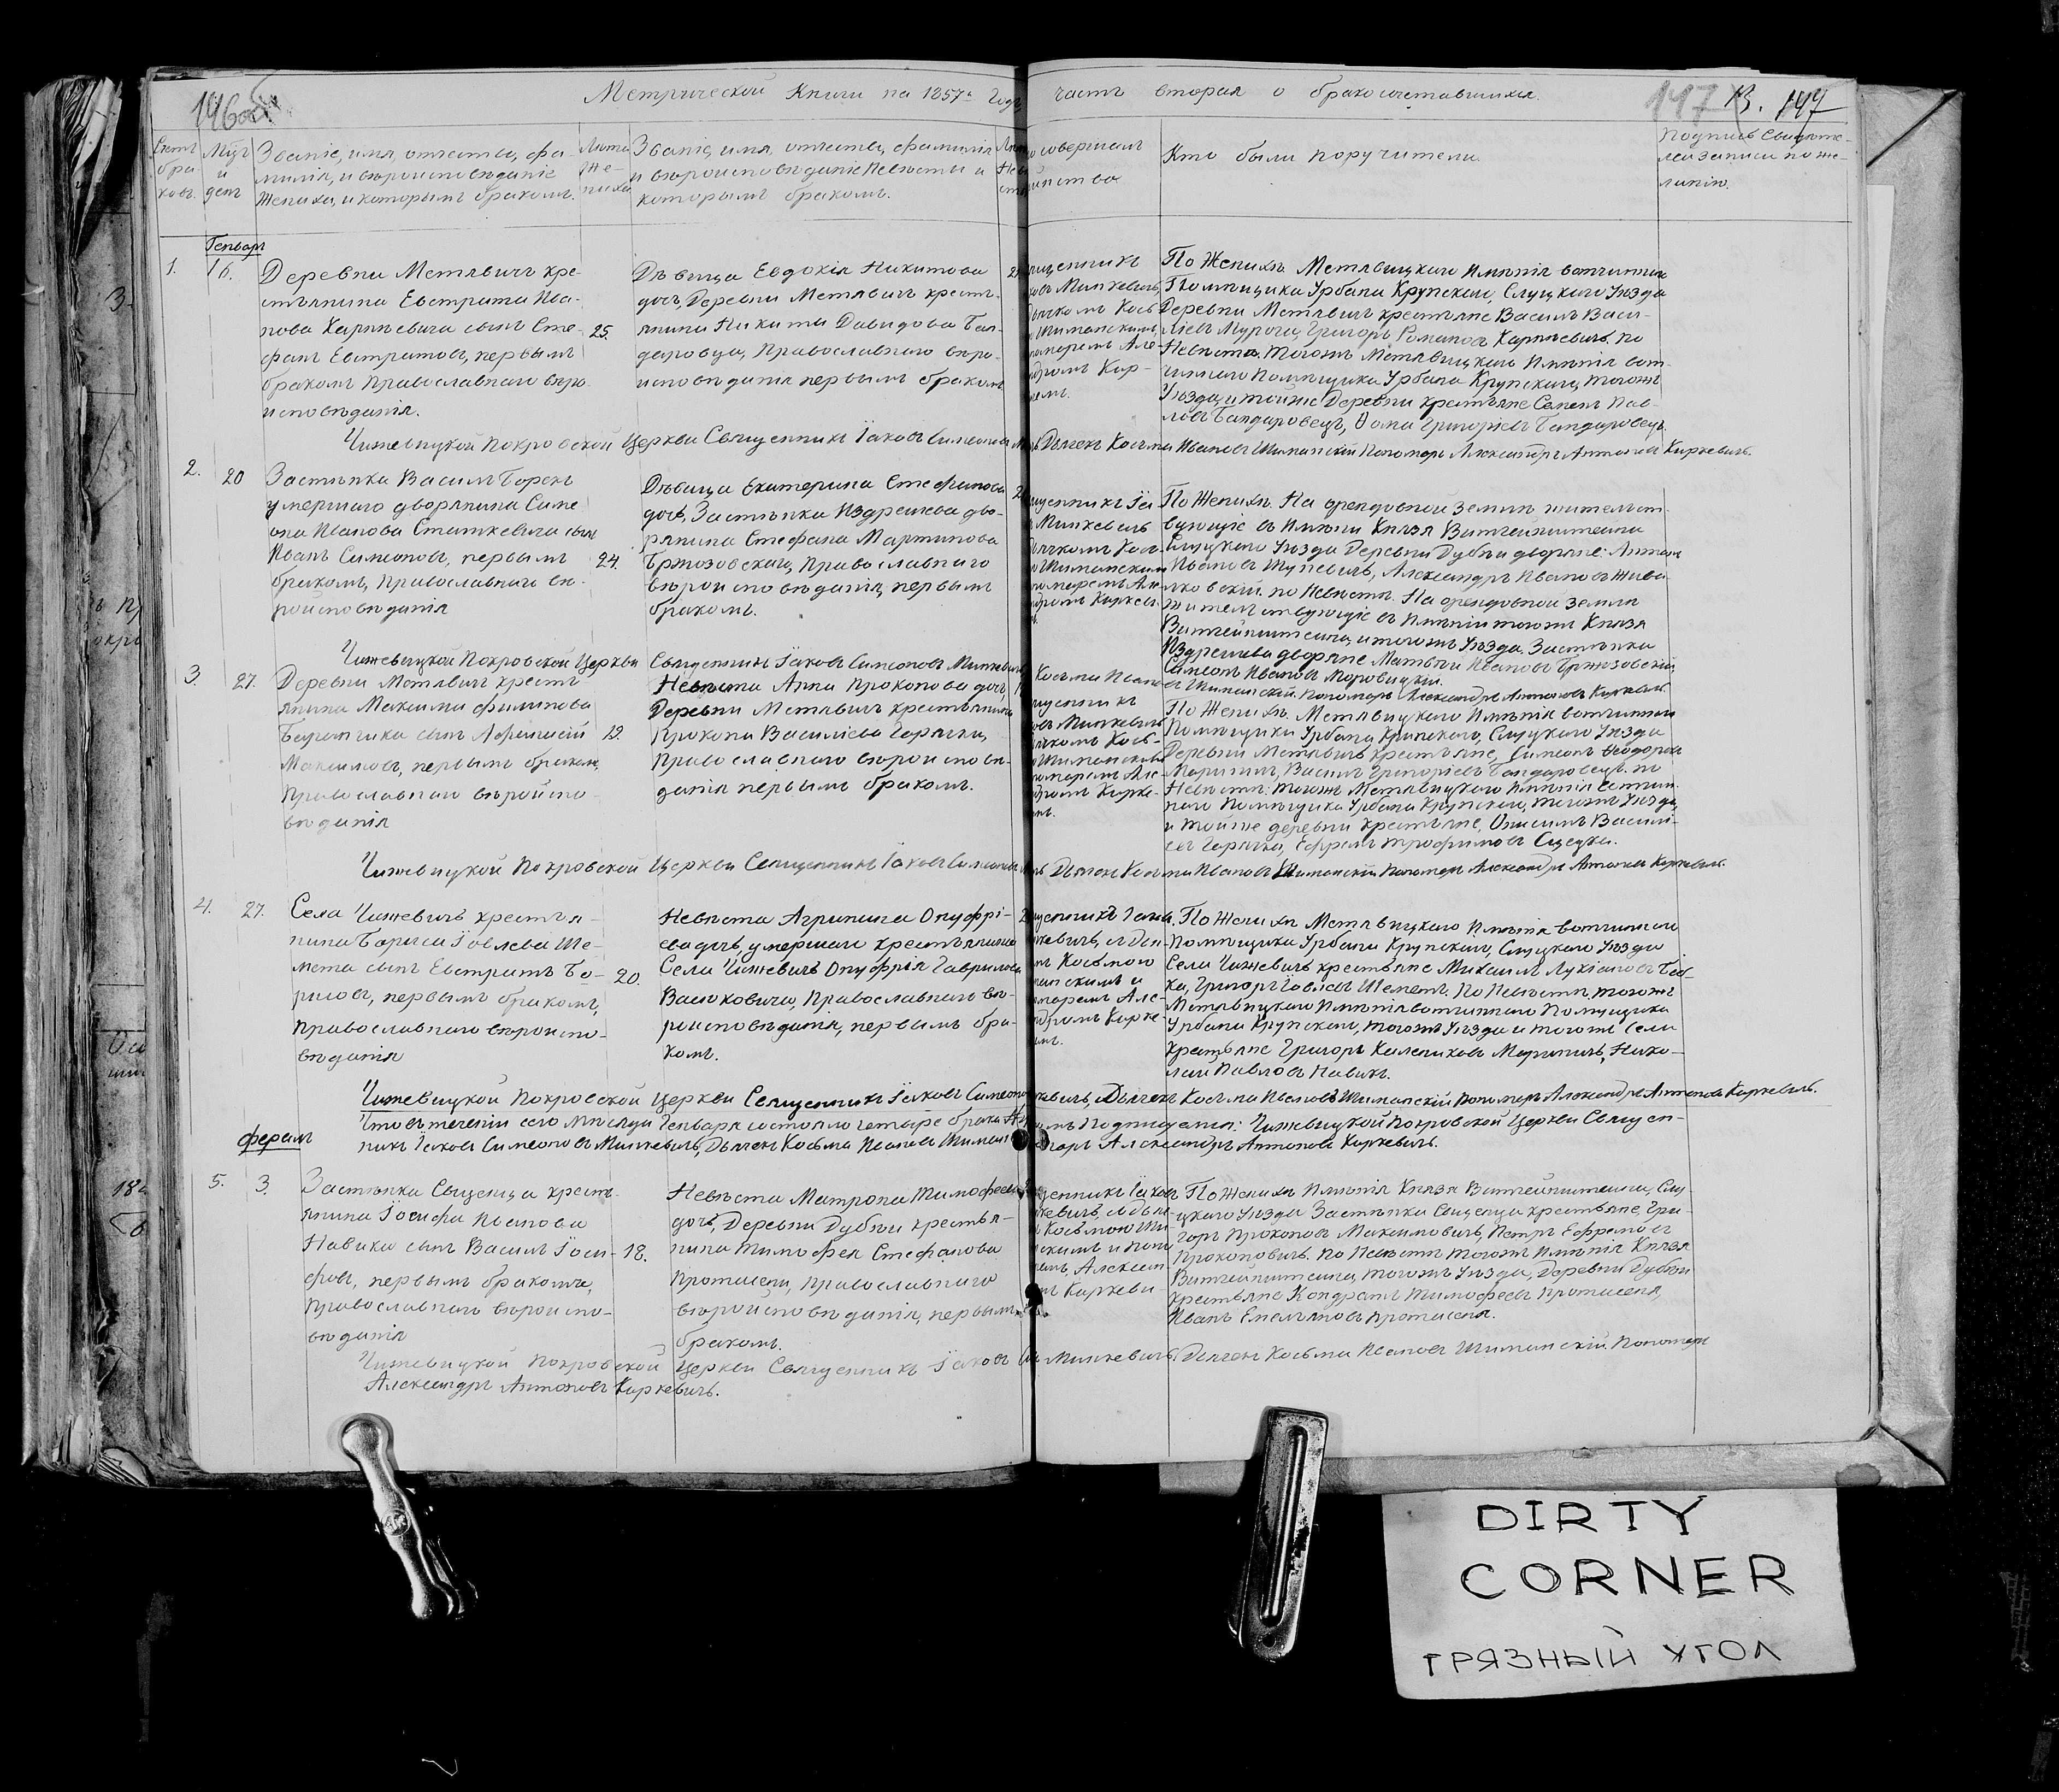 Метрической Книги на 1857й Годъ часть вторая о бракосочетавшихся.
146об
147
В. 147
Счетъ бра- ковъ.
Мѣц и день
Званіе, имя, отчество, фа-
милія, и вѣроисповѣданіе
Жениха, и которымъ бракомъ.
Лѣта Же- ниха
Званіе, имя, отчество, фамилія
и вѣроисповѣданіе Невѣсты и
которымъ бракомъ.
совершалъ
Кто были поручители.
Подпись свидѣте-
лей записи по же-
ланію.
Генварь
1.
16.
Деревни Метявичъ кре-
стьянина Евстрата Ива-
нова Карпѣевича сынъ Сте-
фанъ Евстратовъ, первымъ
бракомъ Православнаго вѣро-
исповѣданія.
25.
Дѣвица Евдокія Никитова
дочь, Деревни Метявичъ кресть-
янина Никиты Давидова Бан-
даровца, Православнаго вѣро-
исповѣданія первымъ бракомъ
По Женихѣ. Метявицкаго Имѣнія вотчиннаго
Помѣщика Урбана Крупскаго, Слуцкаго Уѣзда
Деревни Метявичъ крестьяне Василъ Васи-
ліевъ Мурочъ, Григоръ Романовъ Карпѣевичъ, по
Невѣстѣ, тогожъ Метявицкаго Имѣнія вот-
чиннаго Помѣщика Урбана Крупскаго, тогожъ
Уѣзда, и тойже Деревни крестьяне Семенъ Пав-
ловъ Бандаровецъ, Ѳома Григоріевъ Бандаровецъ.
Чижевицкой Покровской Церкви Священникъ Іаковъ Симеоновъ Дьячекъ Косьма Ивановъ Шиманскій Пономарь Александръ Антоновъ Киркевичъ.
2.
20
Застѣнка Василъ Борекъ
умершаго дворянина Симе-
она Иванова Статкевича сынъ
Иванъ Симеоновъ, первымъ
бракомъ, Православнаго вѣ-
роисповѣданія
24.
Дѣвица Екатерина Стефанова
дочь, Застѣнка Издрешева дво-
рянина Стефана Мартинова
Бржозовскаго, Православнаго
вѣроисповѣданія, первымъ
бракомъ.
По Женихѣ. На арендовной Землѣ жительст-
вующіе въ Имѣніи Князя Витгенштейна
Слуцкаго Уѣзда Деревни Дубѣи дворяне: Антонъ
Ивановъ Шуневичъ, Александръ Ивановъ Жива-
лковскій. по Невѣстѣ. На арендовной Землѣ
жительствующіе въ Имѣніи тогожъ Князя
Витгейнштейна, и тогожъ Уѣзда, Застѣнка
Издрешева дворяне Матвѣй Ивановъ Бржозовскій,
Самсонъ Ивановъ Моровицкій.
Чижевицкой Покровской Церкви Священникъ Іаковъ Симеоновъ Минкевичъ Косьма Ивановъ Шиманскій. Пономарь Александръ Антоновъ Киркевичъ.
3.
27.
Деревни Метявичъ кресть-
янина Максима Филипова
сынъ Афанасій
Максимовъ, первымъ бракомъ,
Православнаго вѣроиспо-
вѣданія
19.
Невѣста Анна Прокопова дочь,
Деревни Метявичъ крестьянина
Прокопа Василіева Горячки,
Православнаго вѣроисповѣ-
данія первымъ бракомъ.
По Женихѣ. Метявицкаго Имѣнія вотчиннаго
Помѣщика Урбана Крупскаго, Слуцкаго Уѣзда
Деревни Метявичъ крестьяне, Симеонъ Ѳеодоровъ
Маринич, Василъ Григоріевъ Бандаровецъ. по
Невѣстѣ: тогожъ Метявицкаго Имѣнія вотчин-
наго Помѣщика Урбана Крупскаго, тогожъ Уѣзда,
и тойже деревни крестьяне, Онисимъ Васили-
евъ Горячка, Ефремъ Трофимовъ Сыцевка.
Чижевицкой Покровской Церкви Священникъ Іаковъ Симеоновъ Дьячекъ Косьма Ивановъ Шиманскій Пономарь Александръ Антоновъ Киркевичъ.
4.
27.
Села Чижевичъ крестья-
нина Бориса Іовлева Ше-
мета сынъ Евстратъ Бо-
рисовъ, первымъ бракомъ,
Православнаго вѣроиспо-
вѣданія
20.
Невѣста Агрипина Онуфрі-
ева дочь, умершаго крестьянина
Села Чижевичъ Онуфрія Гаврилова
Васюковича, Православнаго вѣ-
роисповѣданія, первымъ бра-
комъ.
По Женихѣ Метявицкаго Имѣнія вотчиннаго
Помѣщика Урбана Крупскаго, Слуцкаго Уѣзда
Села Чижевичъ крестьяне Михаилъ Лукіановъ
Григоръ Іовлевъ Шеметъ. По Невѣстѣ, тогожъ
Метявицкаго Имѣнія вотчиннаго Помѣщика
Урбана Крупскаго, тогожъ Уѣзда и тогожъ Села
крестьяне Григоръ Калениковъ Мариничъ, Нико-
лай Павловъ Навикъ.
Чижевицкой Покровской Церкви Священникъ Іаковъ Симеоновъ Дьячекъ Косьма Ивановъ Шиманскій Пономарь Александръ Антоновъ Киркевичъ.
Что въ теченіи сего мѣсяца Генваря состояло четыре брака Подписуемся: Чижевицкой Покровской Церкви Священ-
никъ Іаковъ Симеоновъ Минкевичъ, Дьячекъ Косьма Ивановъ Шиманскій Александръ Антоновъ Киркевичъ.
Февраль
5.
3.
Застѣнка Свиденца кресть-
янина Іосифа Иванова
Навика сынъ Василъ Іоси-
фовъ, первымъ бракомъ,
Православнаго вѣроиспо-
вѣданія
18.
Невѣста Матрона Тимофеева
дочь, Деревни Дубѣи крестья-
нина Тимофея Стефанова
Протасени, Православнаго
вѣроисповѣданія, первымъ
бракомъ.
По Женихѣ Имѣнія Князя Витгейнштейна, Слу-
цкаго Уѣзда Застѣнка Свиденца крестьяне, Гри-
горъ Прокоповъ Максимовичъ, Петръ Ефремовъ
Прокоповичъ. По Невѣстѣ тогожъ Имѣнія Князя
Витгейнштейна, тогожъ Уѣзда, Деревни Дубѣи
крестьяне Кондратъ Тимофеевъ Протасеня,
Иванъ Емельяновъ Протасеня.
Чижевицкой Покровской Церкви Священникъ Іаковъ Минкевичъ. Дьячекъ Косьма Ивановъ Шиманскій. Пономарь
Александръ Антоновъ Киркевичъ.
DIRTY
CORNER
ГРЯЗНЫЙ УГОЛ